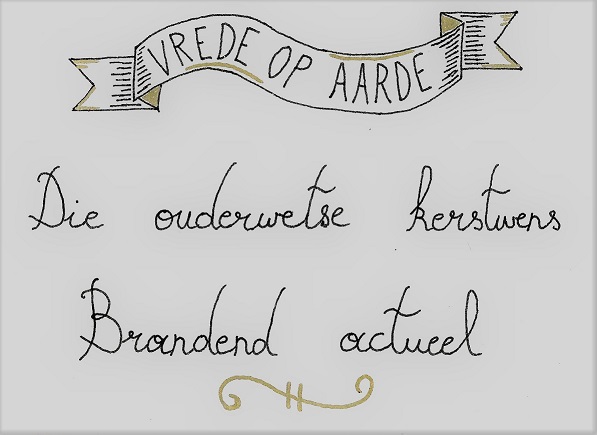 VREDE OP AARDE
Die ouderwetse kerstwens
Brandend actueel